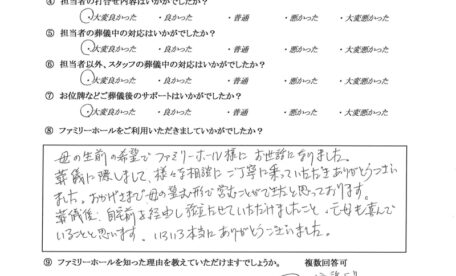 ④ 担当者の打合せ内容はいかがでしたか?
・大変良かった ・良かった ・普通 ・悪かった ・大変悪かった
⑤ 担当者の葬儀中の対応はいかがでしたか?
・大変良かった ・良かった ・普通 ・悪かった ・大変悪かった
⑥ 担当者以外、スタッフの葬儀中の対応はいかがでしたか?
・大変良かった ・良かった ・普通 ・悪かった ・大変悪かった
⑦ お位牌などご葬儀後のサポートはいかがでしたか?
・大変良かった ・良かった ・普通 ・悪かった ・大変悪かった
⑧ ファミリーホールをご利用いただきましていかがでしたか?
母の生前の希望でファミリーホール様にお世話になりました。
葬儀に際しまして、様々な相談にご丁寧に乗っていただきありがとうござい
ました。おかげさまで母の望む形で営むことができたと思っております。
葬儀後、自宅前を経由し せていただけましたこと、亡母も喜んで
いることと思います。いろいろ本当にありがとうございました。
⑨ ファミリーホールを知った理由を教えていただけますでしょうか。 複数回答可